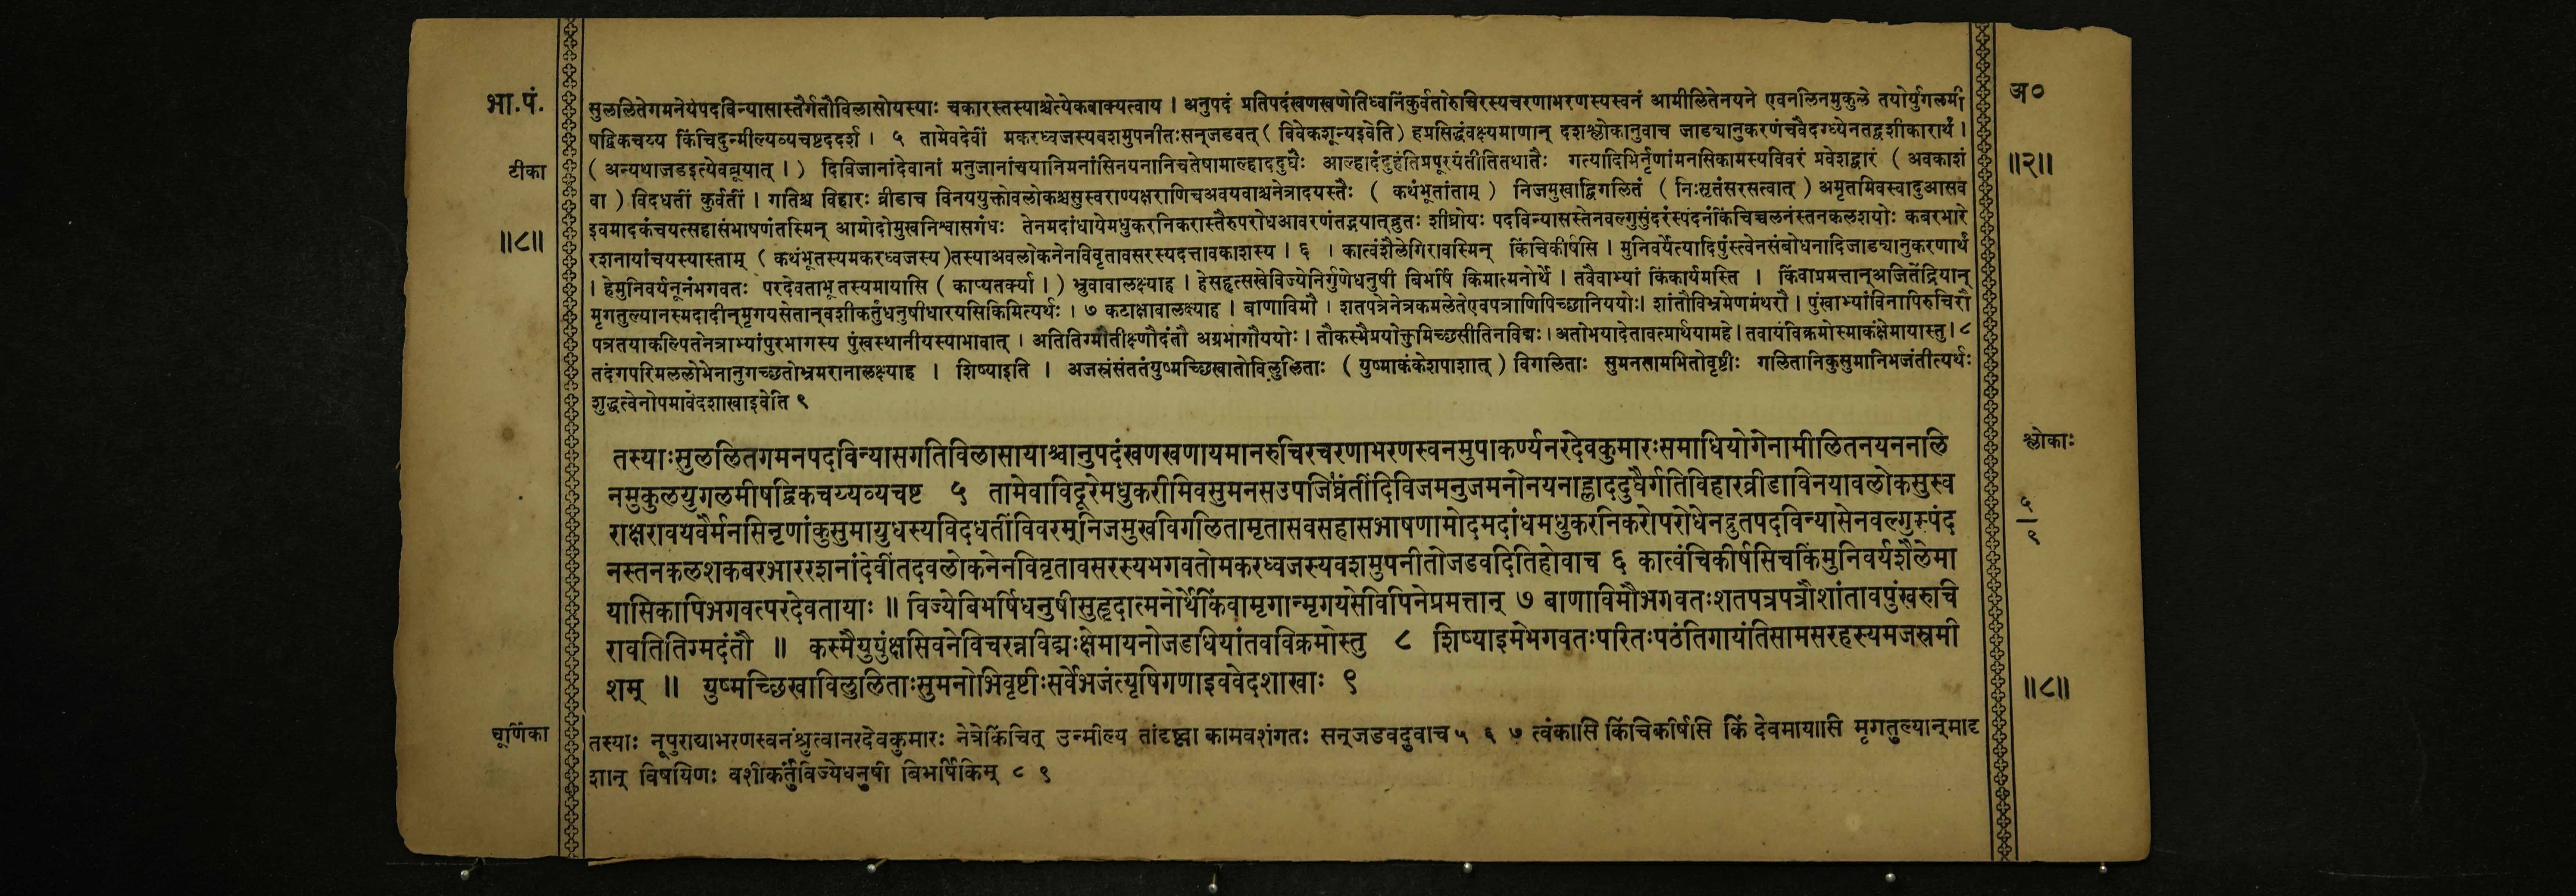 भा.पं.
अ०
सुललितेगमनेयेपदविन्यासास्तैर्गतौविलासोयस्याः चकारस्तस्याश्चेत्येकवाक्यत्वाय । अनुपदं प्रतिपदंखणखणेतिध्वनिंकुर्वतोरुचिरस्यचरणाभरणस्यस्वनं आमीलितेनयने एवनलिनमुकुले तयोर्युगलमी
षद्विकचय्य किंचिदुन्मील्यव्यचष्टददर्श । ५ तामेवदेवीं मकरध्वजस्यवशमुपनीतःसन्‌जडवत् ( विवेकशून्यइवेति ) हप्रसिद्धंवक्ष्यमाणान् दशश्लोकानुवाच जाड्यानुकरणंचवैदग्ध्येनतद्वशीकारार्थं ।
टीका
॥२॥
( अन्यथाजडइत्येवब्रूयात् । ) दिविजानांदेवानां मनुजानांचयानिमनांसिनयनानिचतेषामाल्हाददुघैः आल्हादंदुहंतिप्रपूरयंतीतितथातैः गत्यादिभिर्नृणांमनसिकामस्यविवरं प्रवेशद्वारं ( अवकाशं
वा ) विदधतीं कुर्वतीं । गतिश्च विहारः व्रीडाच विनययुक्तोवलोकश्चसुस्वराण्यक्षराणिचअवयवाश्चनेत्रादयस्तैः ( कथंभूतांताम् ) निजमुखाद्विगलितं ( निःसृतंसरसत्वात् ) अमृतमिवस्वादुआसव
॥८॥
इवमादकंचयत्सहासंभाषणंतस्मिन् आमोदोमुखनिश्वासगंधः तेनमदांधायेमधुकरनिकरास्तैरुपरोधआवरणंतद्भयात्‌द्रुतः शीघ्रोयः पदविन्यासस्तेनवल्गुसुंदरंस्पंदनंकिंचिच्चलनंस्तनकलशयोः कबरभारे
रशनायांचयस्यास्ताम् ( कथंभूतस्यमकरध्वजस्य)तस्याअवलोकनेनविवृतावसरस्यदत्तावकाशस्य । ६ । कात्वंशैलेगिरावस्मिन् किंचिकीर्षसि । मुनिवर्येत्यादिपुंस्त्वेनसंबोधनादिजाड्यानुकरणार्थं
। हेमुनिवर्यनूनंभगवतः परदेवताभूतस्यमायासि ( काप्यतर्क्या । ) भ्रुवावालक्ष्याह । हेसहृत्सखेविज्येनिर्गुणेधनुषी बिभर्षि किमात्मनोर्थे । तवैवाभ्यां किंकार्यमस्ति । किंवाप्रमत्तान्‌अजितेंद्रियान्
मृगतुल्यानस्मदादीन्‌मृगयसेतान्‌वशीकर्तुंधनुषीधारयसिकिमित्यर्थः । ७ कटाक्षावालक्ष्याह । बाणाविमौ । शतपत्रेनेत्रकमलेतेएवपत्राणिपिच्छानिययोः। शांतौविभ्रमेणमंथरौ । पुंखाभ्यांविनापिरुचिरौ
पत्रतयाकल्पितनेत्राभ्यांपुरभागस्य पुंखस्थानीयस्याभावात् । अतितिग्मौतीक्ष्णौदंतौ अग्रभागौययोः । तौकस्मैप्रयोक्तुमिच्छसीतिनविद्मः। अतोभयादेतावत्प्रार्थयामहे । तवायंविक्रमोस्माकंक्षेमायास्तु। ८
तदंगपरिमललोभेनानुगच्छतोभ्रमरानालक्ष्याह । शिष्याइति । अजस्रंसंततंयुष्मच्छिखातोविलुलिताः ( युष्माकंकेशपाशात् ) विगलिताः सुमनसामभितोवृष्टीः गलितानिकुसुमानिभजंतीत्यर्थः
शुद्धत्वेनोपमावेदशाखाइवेति ९
श्लोकाः
तस्याःसुललितगमनपदविन्यासगतिविलासायाश्चानुपदंखणखणायमानरुचिरचरणाभरणस्वनमुपाकर्ण्यनरदेवकुमारःसमाधियोगेनामीलितनयननलि
नमुकुलयुगलमीषद्विकचय्यव्यचष्ट ५ तामेवाविदूरेमधुकरीमिवसुमनसउपजिघ्रंतींदिविजमनुजमनोनयनाह्लाददुघैर्गतिविहारव्रीडाविनयावलोकसुस्व
५
९
राक्षरावयवैर्मनसिनृणांकुसुमायुधस्यविदधतींविवरम्‌निजमुखविगलितामृतासवसहासभाषणामोदमदांधमधुकरनिकरोपरोधेनद्रुतपदविन्यासेनवल्गुस्पंद
नस्तनकलशकबरभाररशनांदेवींतदवलोकनेनविवृतावसरस्यभगवतोमकरध्वजस्यवशमुपनीतोजडवदितिहोवाच ६ कात्वंचिकीर्षसिचकिंमुनिवर्यशैलेमा
यासिकापिभगवत्परदेवतायाः ॥ विज्येबिभर्षिधनुषीसुहृदात्मनोर्थेकिंवामृगान्मृगयसेविपिनेप्रमत्तान् ७ बाणाविमौभगवतःशतपत्रपत्रौशांतावपुंखरुचि
रावतितिग्मदंतौ ॥ कस्मैयुयुंक्षसिवनेविचरन्नविद्मःक्षेमायनोजडधियांतवविक्रमोस्तु ८ शिष्याइमेभगवतःपरितःपठंतिगायंतिसामसरहस्यमजस्रमी
शम् ॥ युष्मच्छिखाविलुलिताःसुमनोभिवृष्टीःसर्वेभजंत्यृषिगणाइववेदशाखाः ९
॥८॥
चूर्णिका
तस्याः नूपुराद्याभरणस्वनंश्रुत्वानरदेवकुमारः नेत्रेकिंचित् उन्मील्य तांदृष्ट्वा कामवशंगतः सन्‌जडवदुवाच ५ ६ ७ त्वंकासि किंचिकीर्षसि किं देवमायासि मृगतुल्यान्‌मादृ
शान् विषयिणः वशीकर्तुंविज्येधनुषी बिभर्षिकिम् ८ ९